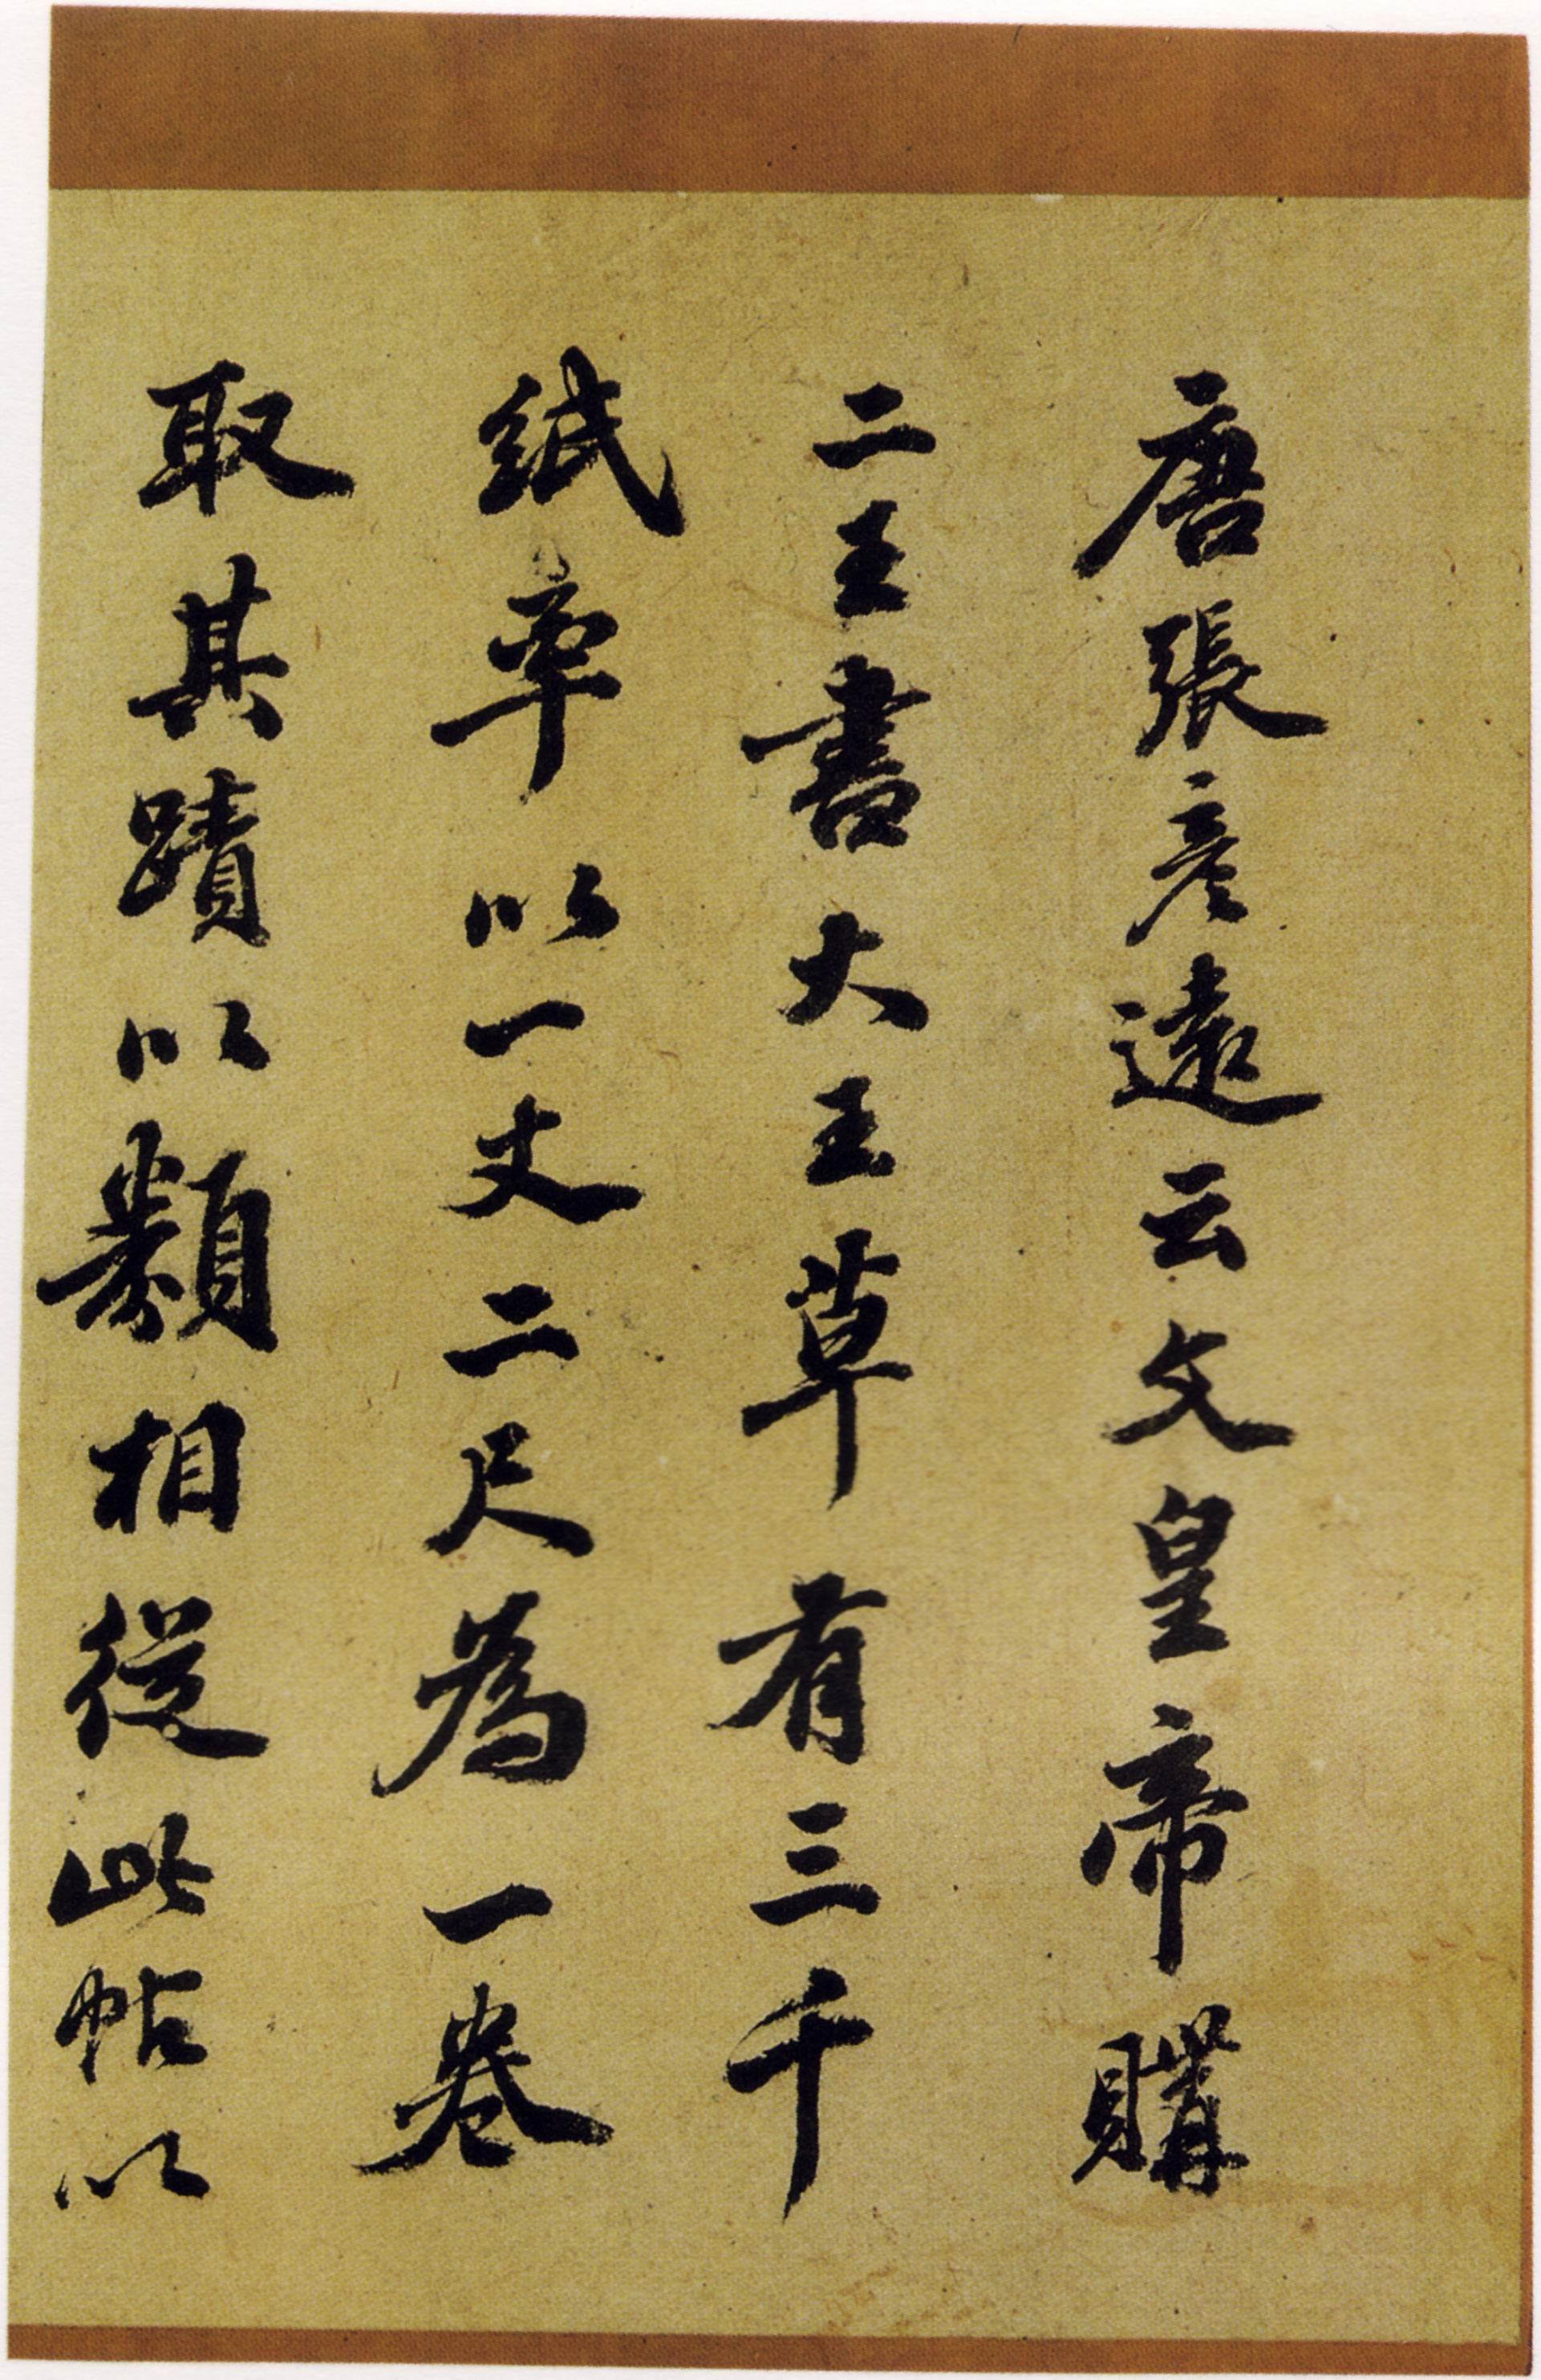 唐張彥遠云文皇帝購
二王書大王草有三千
紙率以一丈二尺為一卷
取其蹟以類相從此帖以